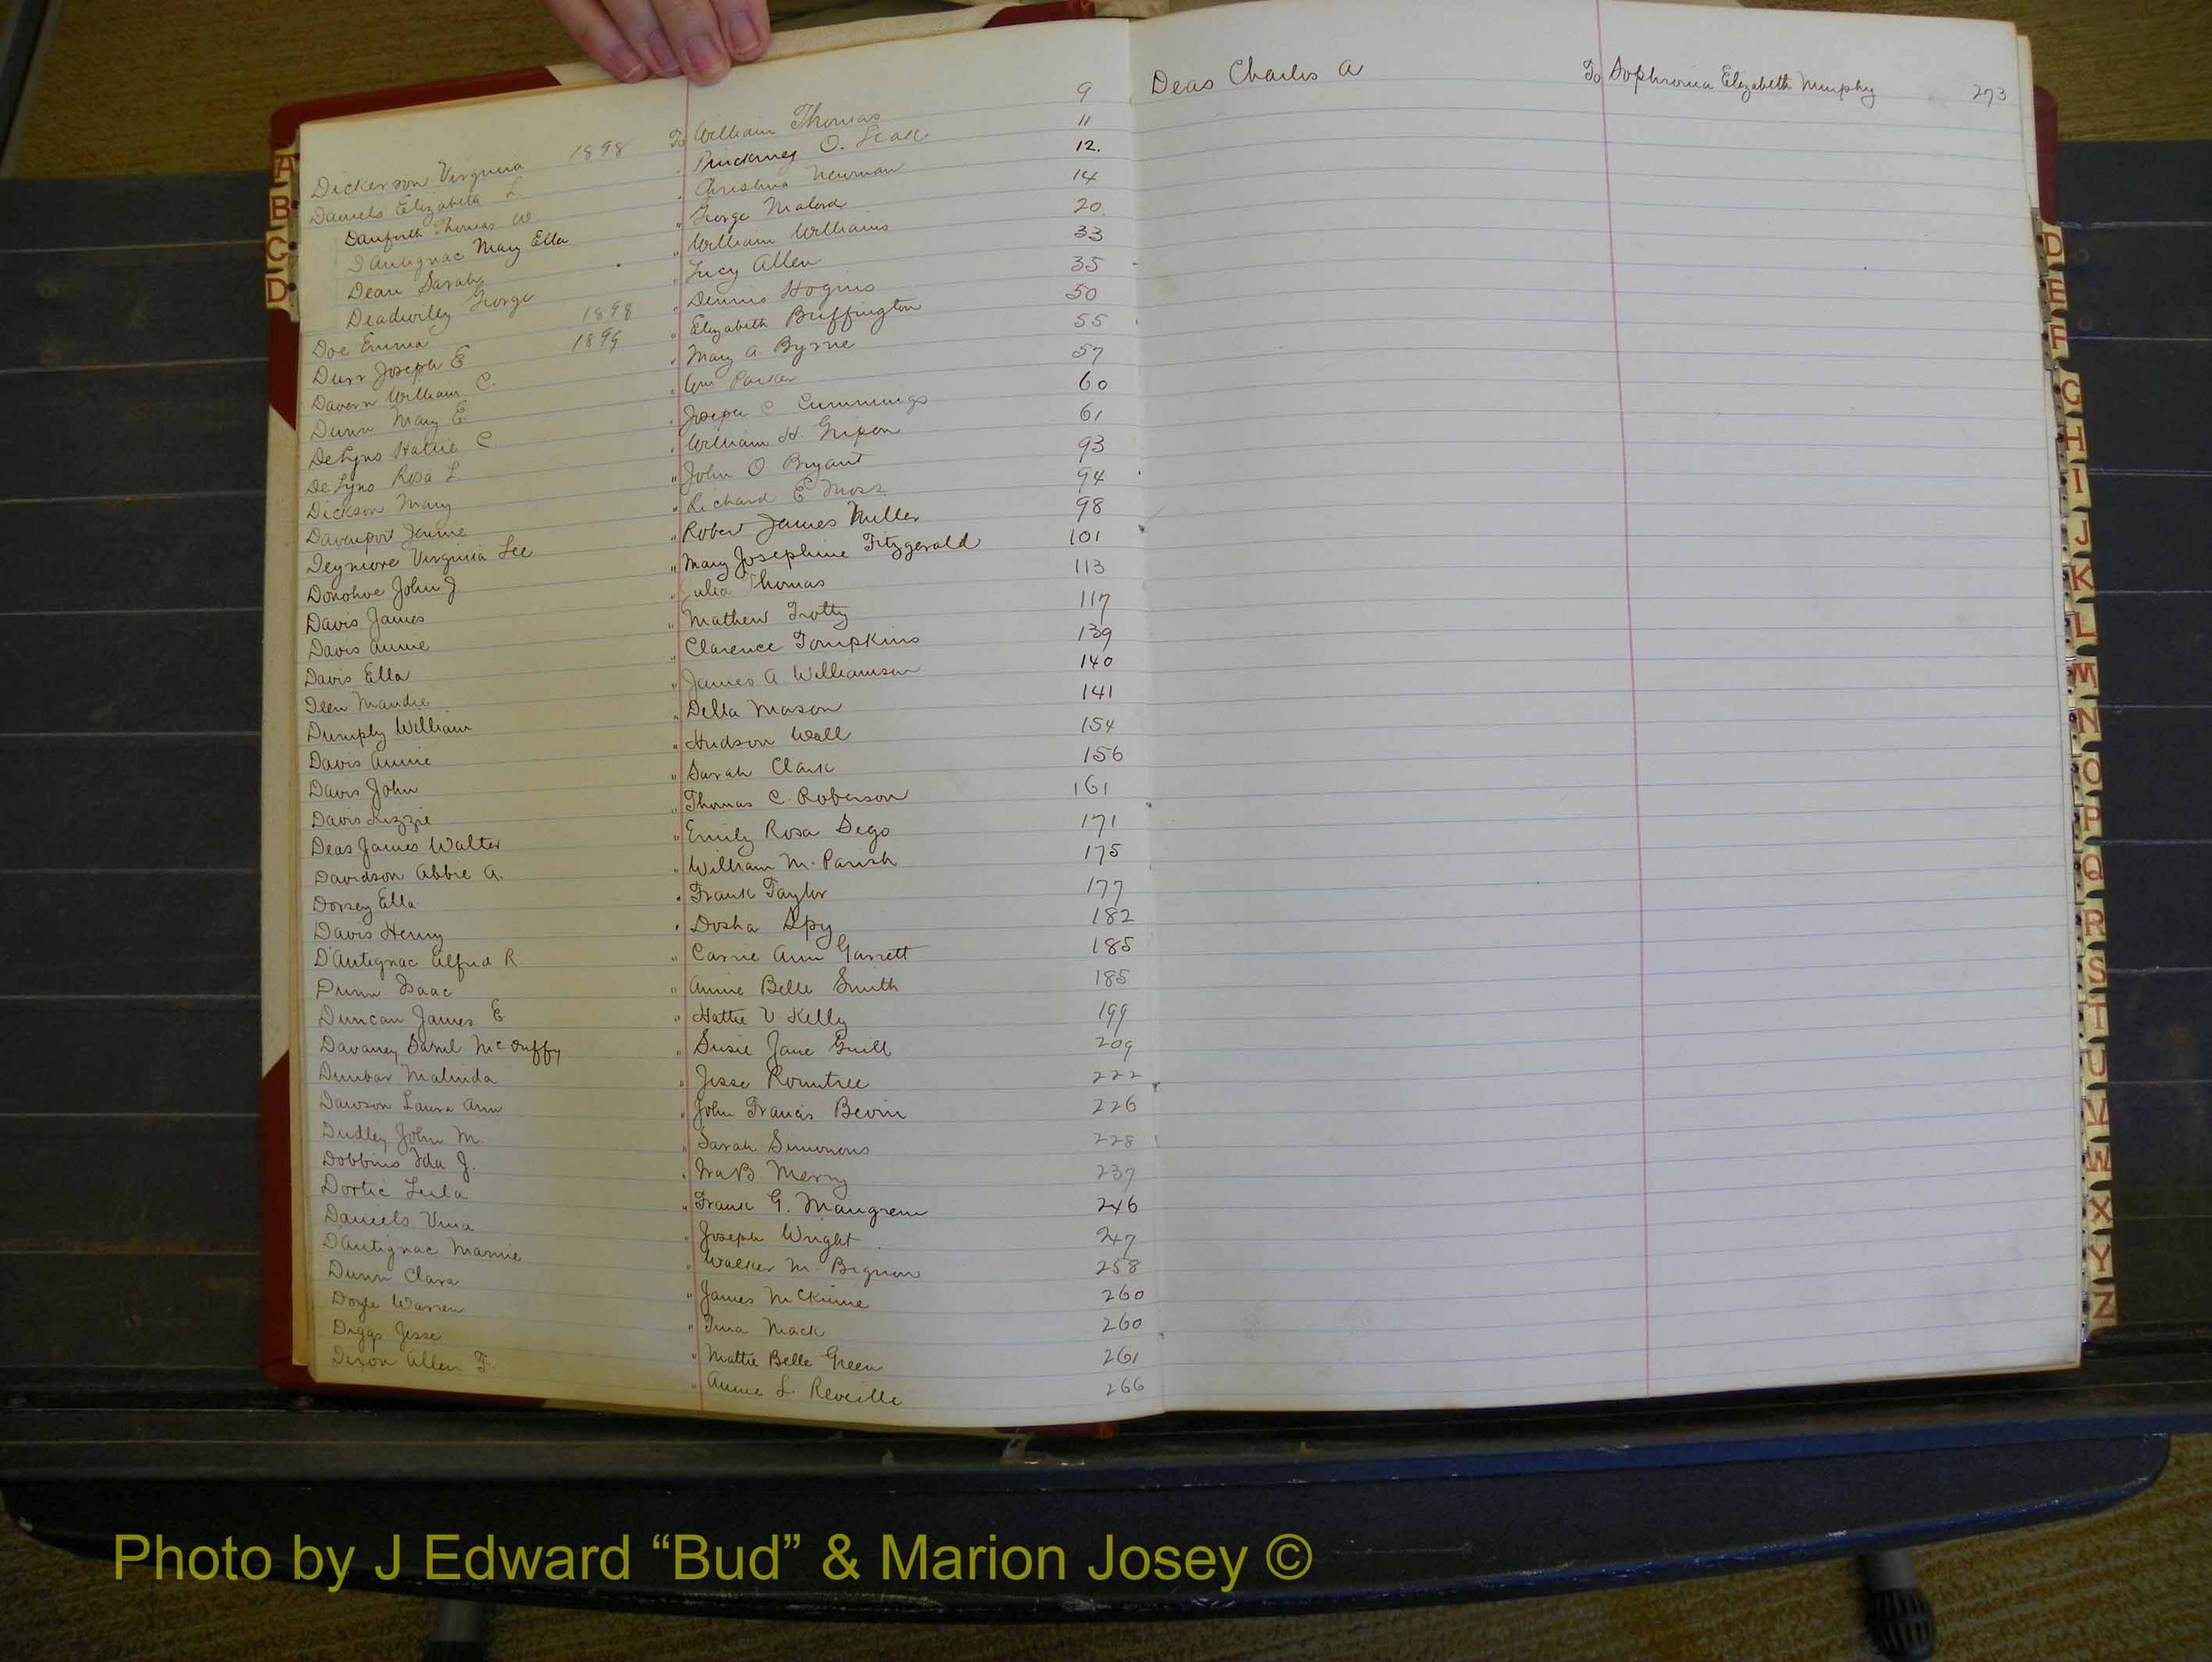 Dickerson Virginia 1898 To William Thomas 9
Daniels Elizabeth L " Pinckney O. 11
Danforth Thomas W. " Christina Newman 12.
D'Antignac Mary Ella " George Malord 14
Dean Sarah " William Williams 20.
Deadwiley George " Lucy Allen 33
Doe Emma 1898 " Dennis Hogins 35
Durr Joseph E 1899 " Elizabeth Buffington 50
Davern William C. " Mary A Byrne 55
Dunn Mary E. " Wm Parker 57
DeLyns Hattie C " Joseph C Cummings 60
De Lyns Rosa L. " William H. Gripon 61
Dickson Mary " John O Bryant 93
Davenport Jennie " Richard E Moss 94
Deymore Virginia Lee " Robert James Miller 98
Donohue John J " Mary Josephine Fitzgerald 101
Davis James " Julia Thomas 113
Davis Annie " Mathew Trotty 117
Davis Ella " Clarence Tompkins 139
Deen Maudie " James A Williamson 140
Dumply William " Della Mason 141
Davis Annie " Hudson Wall 154
Davis John " Sarah Clark 156
Davis Lizzie " Thomas C. Roberson 161
Deas James Walter " Emily Rosa Sego 171
Davidson Abbie A. " William M. Parish 175
Dorsey Ella " Frank Taylor 177
Davis Henry " Dosha Spy 182
D'Antignac Alfred R. " Carrie Ann Garrett 185
Dunn Isaac " Annie Belle Smith 185
Duncan James E " Hattie V Kelly 199
Davaney Basil McDuffy " Susie Jane Guill 209
Dunbar Malinda " Jesse Rountree 222
Dawson Laura Ann " John Francis Bevin 226
Dudley John M. " Sarah Simmons 228
Dobbins Ida J. " Ira B. Merry 237
Dortic Lula " Frank G. Mangrem 246
Daniels Vina " Joseph Wright 247
D'Antignac Mamie " Walker M. Bignon 258
Dunn Clara " James McKinne 260
Doyle Warren " Tina Mack 260
Diggs Jesse " Mattie Belle Green 261
Dixon Allen F. " Annie L. Reveille 266
Deas Charles A To Sophronia Elizabeth Murphy 273
A
B
C
D
D
E
F
G
H
I
J
K
L
M
N
O
P
Q
R
S
T
U
V
W
X
Y
Z
Photo by J Edward “Bud” & Marion Josey ©